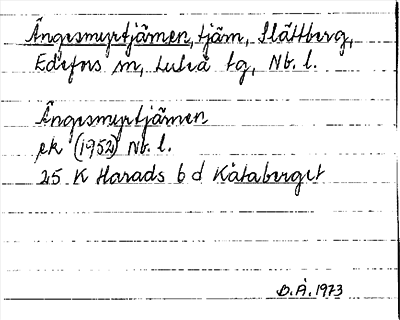 Ängesmyrtjärnen, tjärn, Slättberg,
Edefors sn, Luleå tg, Nb. l.
Ängesmyrtjärnen
ek (1952) Nb. l.
25 K Harads 6 d Kåtaberget
B.Å. 1973